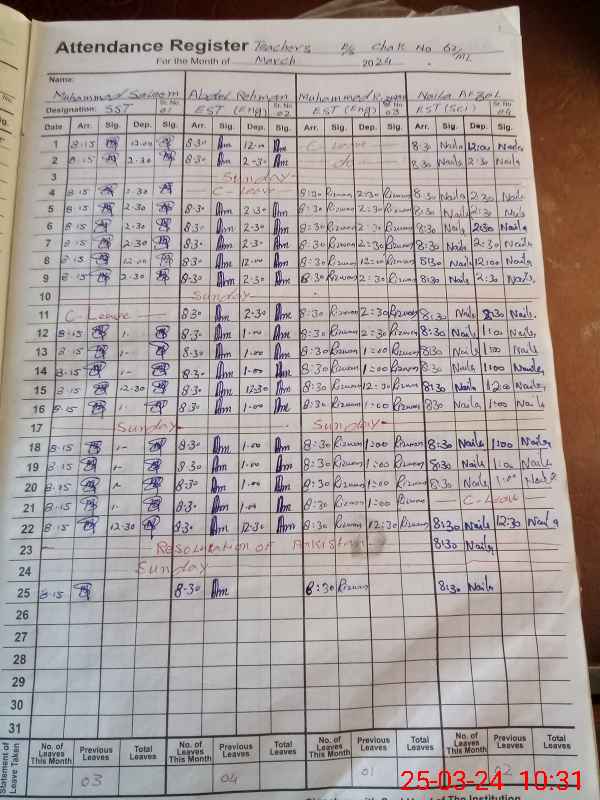 Attendance Register Teachers P/S Chak No 62/ML
For the Month of March 2024
Name: Muhammad Saleem Abdul Rehman Muhammad Rizwan Naila Afzal
Designation: SST Sr. No 01 EST (Eng) Sr. No 02 EST (Eng) Sr. No 03 EST (Sci) Sr. No 04
Date Arr. Sig. Dep. Sig. Arr. Sig. Dep. Sig. Arr. Sig. Dep. Sig. Arr. Sig. Dep. Sig.
1 8.15 12.00 8.30 Am 12.00 Am C-Leave 8:30 Naila 12:00 Naila
2 8.15 2.30 8.30 Am 2.30 Am do 8:30 Naila 2:30 Naila
3 Sunday
4 8.15 2.30 C-Leave 8:30 Rizwan 2:30 Rizwan 8:30 Naila 2:30 Naila
5 8.15 2.30 8.30 Am 2.30 Am 8:30 Rizwan 2:30 Rizwan 8:30 Naila 2:30 Naila
6 8.15 2.30 8.30 Am 2.30 Am 8:30 Rizwan 2:30 Rizwan 8:30 Naila 2:30 Naila
7 8.15 2.30 8.30 Am 2.30 Am 8:30 Rizwan 2:30 Rizwan 8:30 Naila 2:30 Naila
8 8.15 12.00 8.30 Am 12.00 Am 8:30 Rizwan 12:00 Rizwan 8:30 Naila 12:00 Naila
9 8.15 2.30 8.30 Am 2.30 Am 8:30 Rizwan 2:30 Rizwan 8:30 Naila 2:30 Naila
10 Sunday
11 C-Leave 8.30 Am 2.30 Am 8:30 Rizwan 2:30 Rizwan 8:30 Naila 2:30 Naila
12 8.15 1- 8.30 Am 1.00 Am 8:30 Rizwan 2:30 Rizwan 8:30 Naila 1:00 Naila
13 8.15 1- 8.30 Am 1.00 Am 8:30 Rizwan 1:00 Rizwan 8:30 Naila 1:00 Naila
14 8.15 1- 8.30 Am 1.00 Am 8:30 Rizwan 1:00 Rizwan 8:30 Naila 1:00 Naila
15 8.15 12.30 8.30 Am 12.30 Am 8:30 Rizwan 12:30 Rizwan 8:30 Naila 12:00 Naila
16 8.15 1- 8.30 Am 1.00 Am 8:30 Rizwan 1:00 Rizwan 8:30 Naila 1:00 Naila
17 Sunday Sunday
18 8.15 1- 8.30 Am 1.00 Am 8:30 Rizwan 1:00 Rizwan 8:30 Naila 1:00 Naila
19 8.15 1- 8.30 Am 1.00 Am 8:30 Rizwan 1:00 Rizwan 8:30 Naila 1:00 Naila
20 8.15 8.30 Am 1.00 Am 8:30 Rizwan 1:00 Rizwan 8:30 Naila 1:00 Naila
21 8.15 1- 8.30 Am 1.00 Am 8:30 Rizwan 1:00 Rizwan C-Leave
22 8.15 12.30 8.30 Am 12.30 Am 8:30 Rizwan 12:30 Rizwan 8:30 Naila 12:30 Naila
23 Resolution of Pakistan 8:30 Naila
24 Sunday
25 8.15 8.30 Am 8:30 Rizwan 8:30 Naila
26
27
28
29
30
31
Statement of Leave Taken
No. of Leaves This Month Previous Leaves Total Leaves No. of Leaves This Month Previous Leaves Total Leaves No. of Leaves This Month Previous Leaves Total Leaves No. of Leaves This Month Previous Leaves Total Leaves
03 04 01 02
25-03-24 10:31